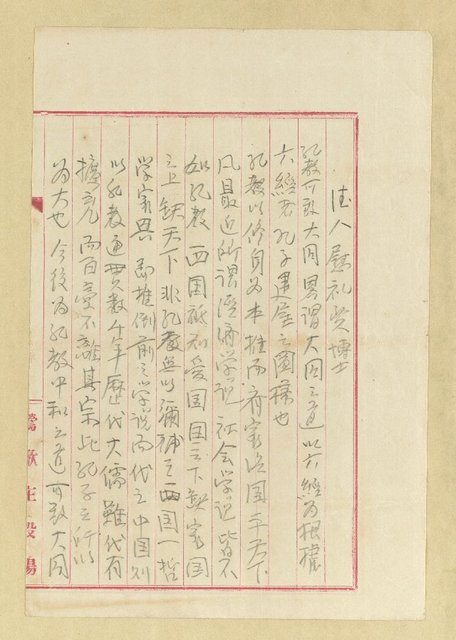 法人慰礼贤博士
孔教可致大同畧谓大同之道以六经为根据
六经者孔子建屋之图稿也
孔教以修身为本推而齐家治国平天下
凡最近所谓经济学说社会学说皆不
如孔教西国祇知爱国国之下缺家国
之上缺天下非孔教无以弥补之西国一哲
学家兴即推倒前之学说而代之中国则
以孔教通贯数千年歷代大儒虽代有
扩充而百变不离其宗此孔子之所以
为大也今后为孔教中和之道可致大同